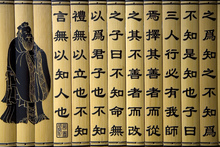 之為知之不知為
不知是知也子曰
三人行必有我師
焉擇其善者而從
之其不善者而改
之子曰不知命無
以為君子也不知
禮無以立也不知
言無以知人也